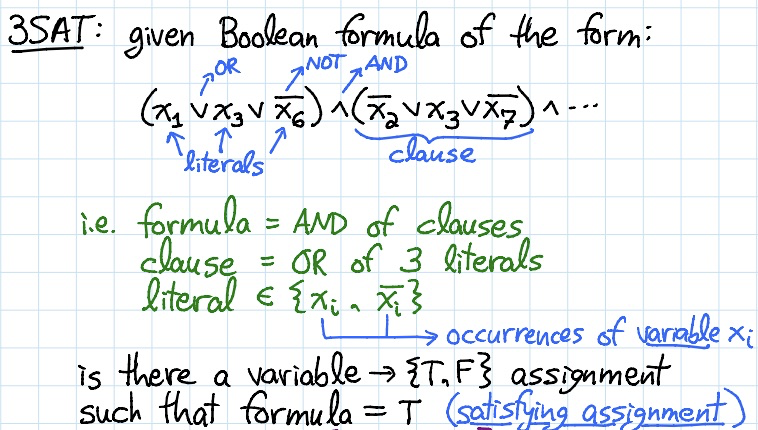 3SAT: given Boolean formula of the form:
OR NOT AND
(x₁ ∨ x₃ ∨ x̅₆) ∧ (x̅₂ ∨ x₃ ∨ x̅₇) ∧ ...
literals clause
i.e. formula = AND of clauses
clause = OR of 3 literals
literal ∈ {xᵢ, x̅ᵢ}
occurrences of variable xᵢ
is there a variable → {T, F} assignment
such that formula = T (satisfying assignment)